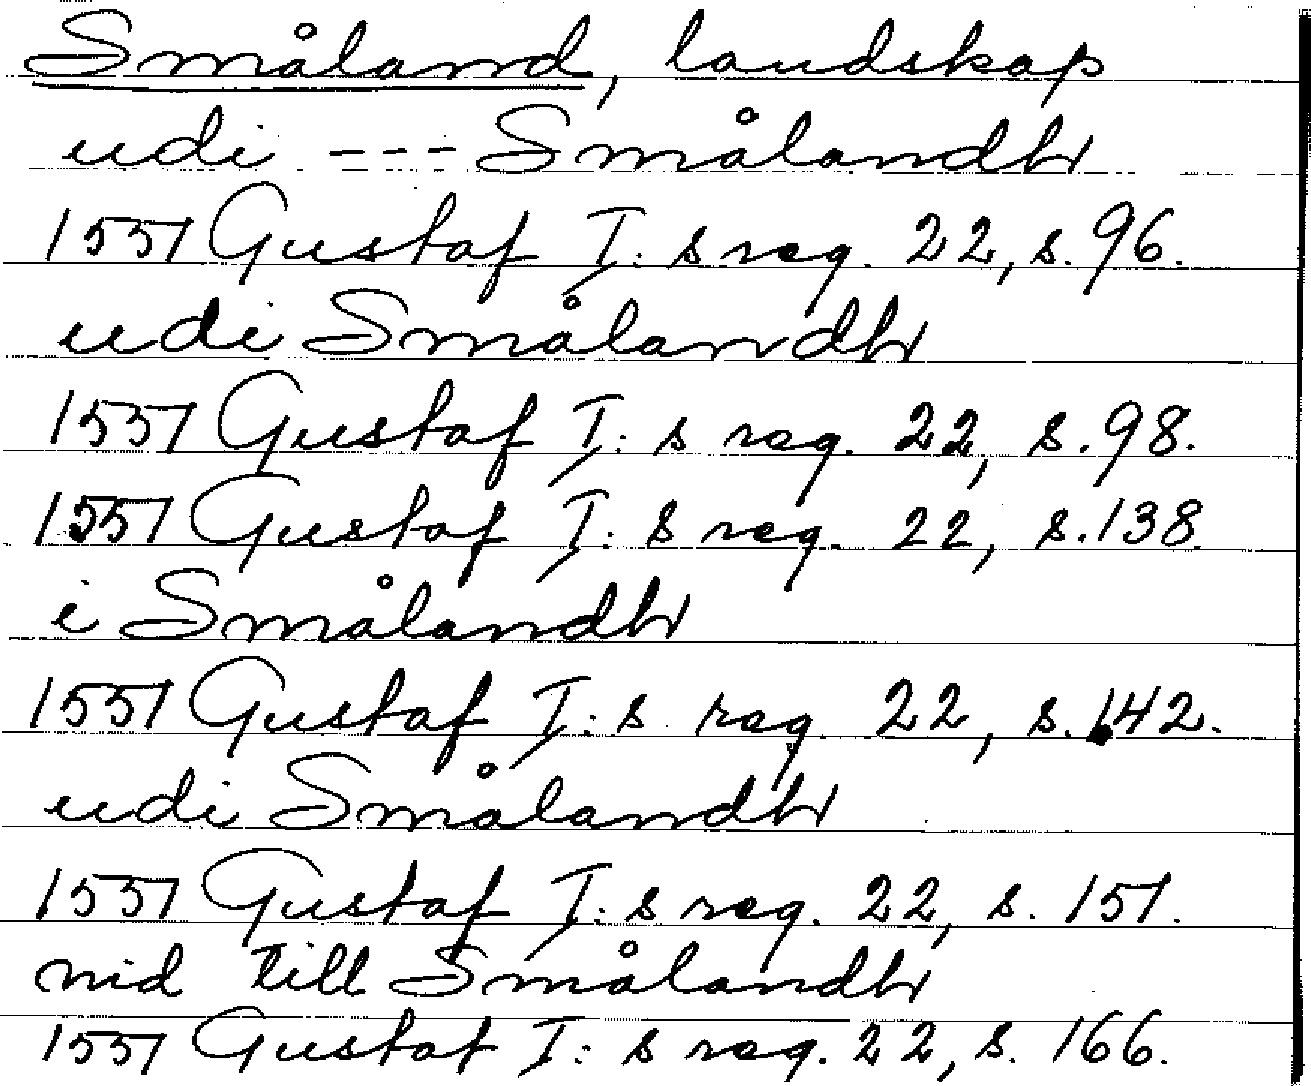 Småland, landskap
udi --- Smålandh
1551 Gustaf I:s reg. 22, s. 96.
udi Smålandh
1551 Gustaf I:s reg. 22, s. 98.
1551 Gustaf I:s reg. 22, s. 138.
i Smålandh
1551 Gustaf I:s reg. 22, s. 142.
udi Smålandh
1551 Gustaf I:s reg. 22, s. 151.
nid till Smålandh
1551 Gustaf I:s reg. 22, s. 166.